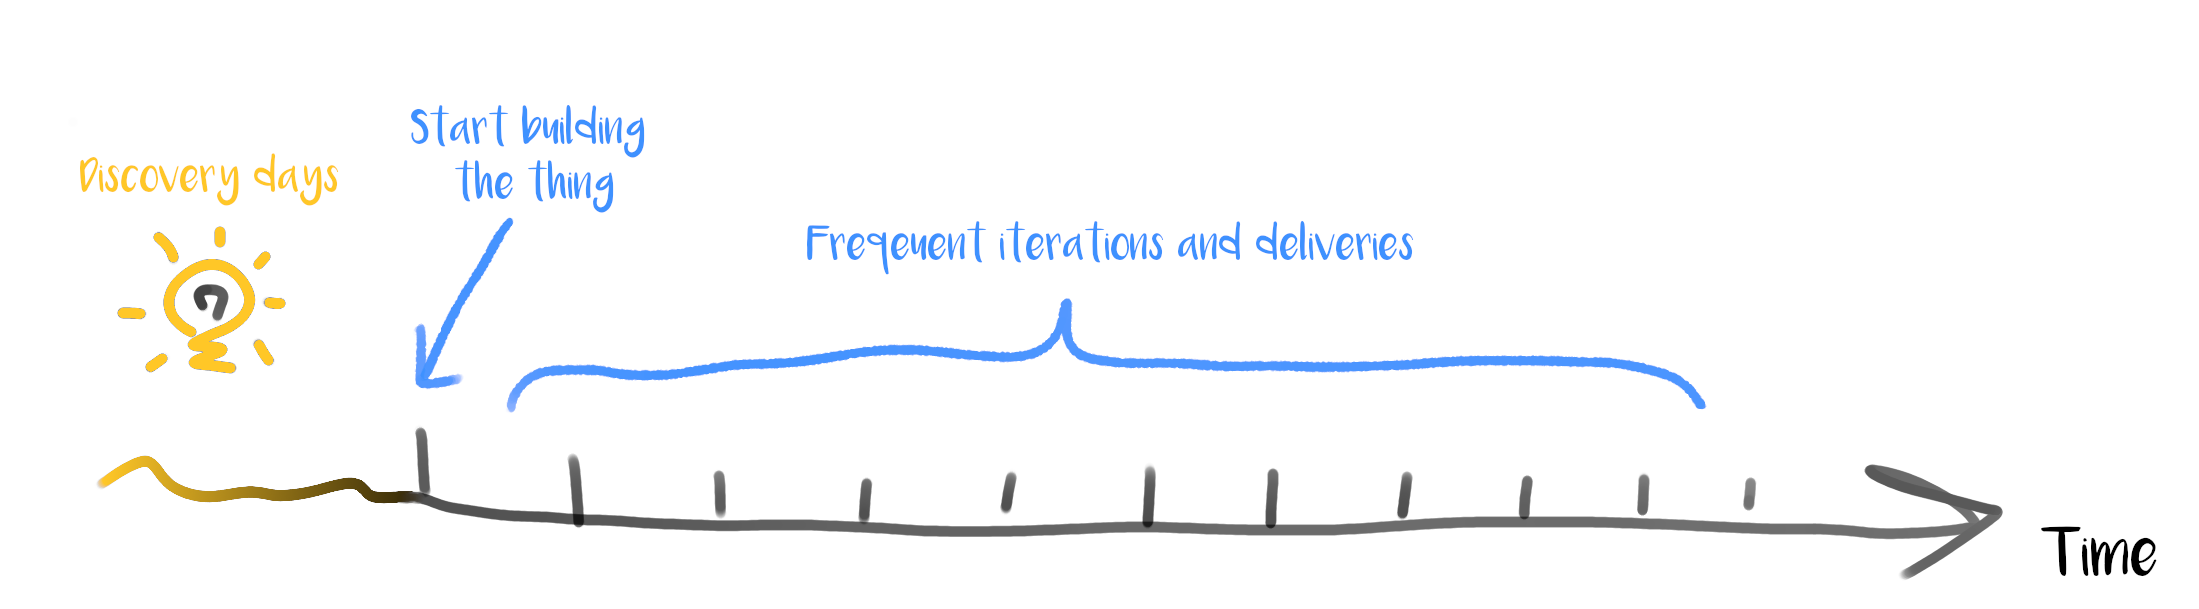 Discovery days
Start building
the thing
Freqeuent iterations and deliveries
Time